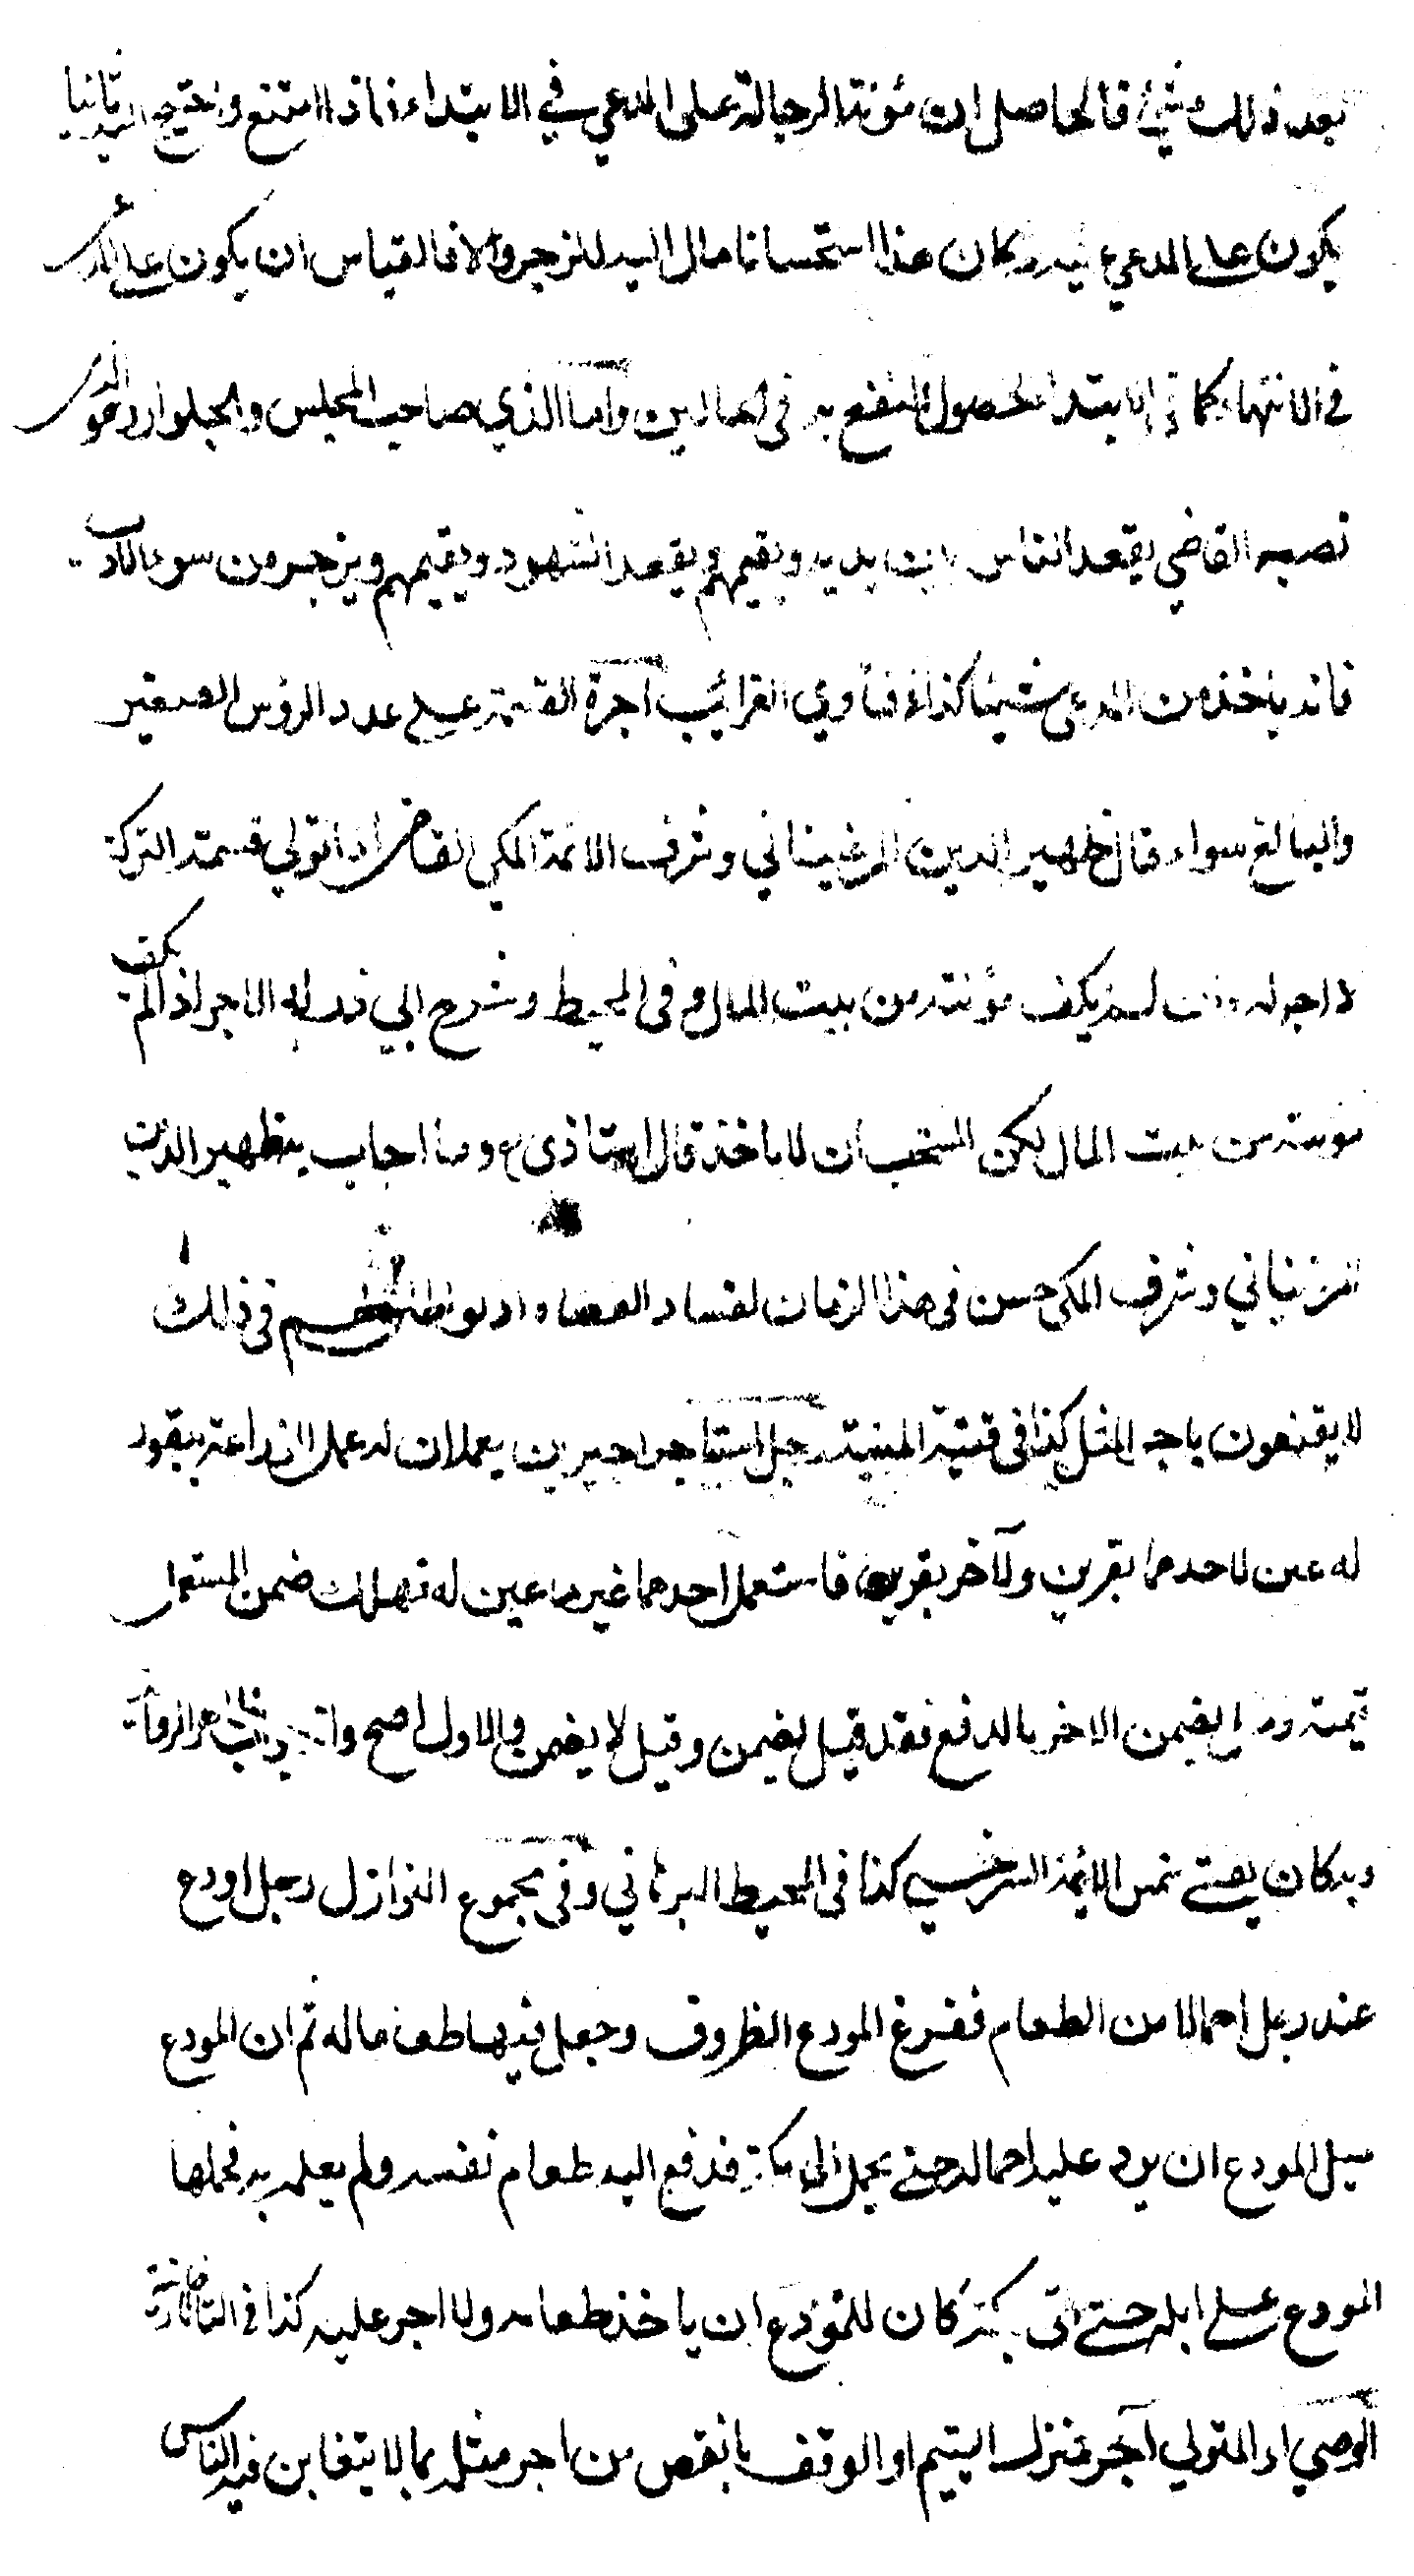 بعد ذلك شيئ فالحاصل ان مؤنة الرجالة على المدعي في الابتداء فاذا امتنع واحتيج اليه ثانيا
يكون على المدعي عليه وكان هذا استحسانا مال اليه للزجر والا فالقياس ان يكون على المدعي
في الانتهاء كما في الابتداء لحصول النفع به في الحالين واما الذي صاحب المجلس والجلواز وهو الذي
نصبه القاضي يقعد الناس بين يديه ويقيمهم ويقعد الشهود ويقيمهم ويزجر من سوء الادب
فانه ياخذ من المدعي شيئا كذا في فتاوي الغرائب اجرة القسمة على عدد الرؤس الصغير
والبالغ سواء قال ظهير الدين المرغيناني وشرف الائمة المكي القاضي اذا تولي قسمة التركة
لا اجر له وان لم يكف مؤنته من بيت المال وفي المحيط وشرح ابي ذر له الاجر اذا لم يكف
مونته من بيت المال لكن المستحب ان لا ياخذ قال استاذي ع وما اجاب به ظهير الدين
المرغيناني وشرف المكي حسن في هذا الزمان لفساد القضاة اذ لو اطلق لهم في ذلك
لا يقنعون باجر المثل كذا في قنية المنية رجل استاجر اجيرين يعملان له عمل الزراعة ببقور
له عين لاحدهما بقرين وللآخر بقرين فاستعمل احدهما غير ما عين له فهلك ضمن المستعمل
قيمته وهل يضمن الاخر بالدفع فقد قيل يضمن وقيل لا يضمن والاول اصح وانه جواب ظاهر الرواية
وبه كان يفتي شمس الائمة السرخسي كذا في المحيط البرهاني وفي مجموع النوازل رجل اودع
عند رجل احمالا من الطعام ففرغ المودع الظروف وجعل فيها طعاما له ثم ان المودع
سيل المودع ان يرد عليه احماله حتى يحمل الى مكة فدفع اليه طعام نفسه ولم يعلم به فحملها
المودع على ابله حتى اتى بمكة كان للمودع ان ياخذ طعامه ولا اجر عليه كذا في التاتارخانية
الوصي او المتولي آجر منزل اليتيم او الوقف بانقص من اجر مثله بما لا يتغابن فيه الناس